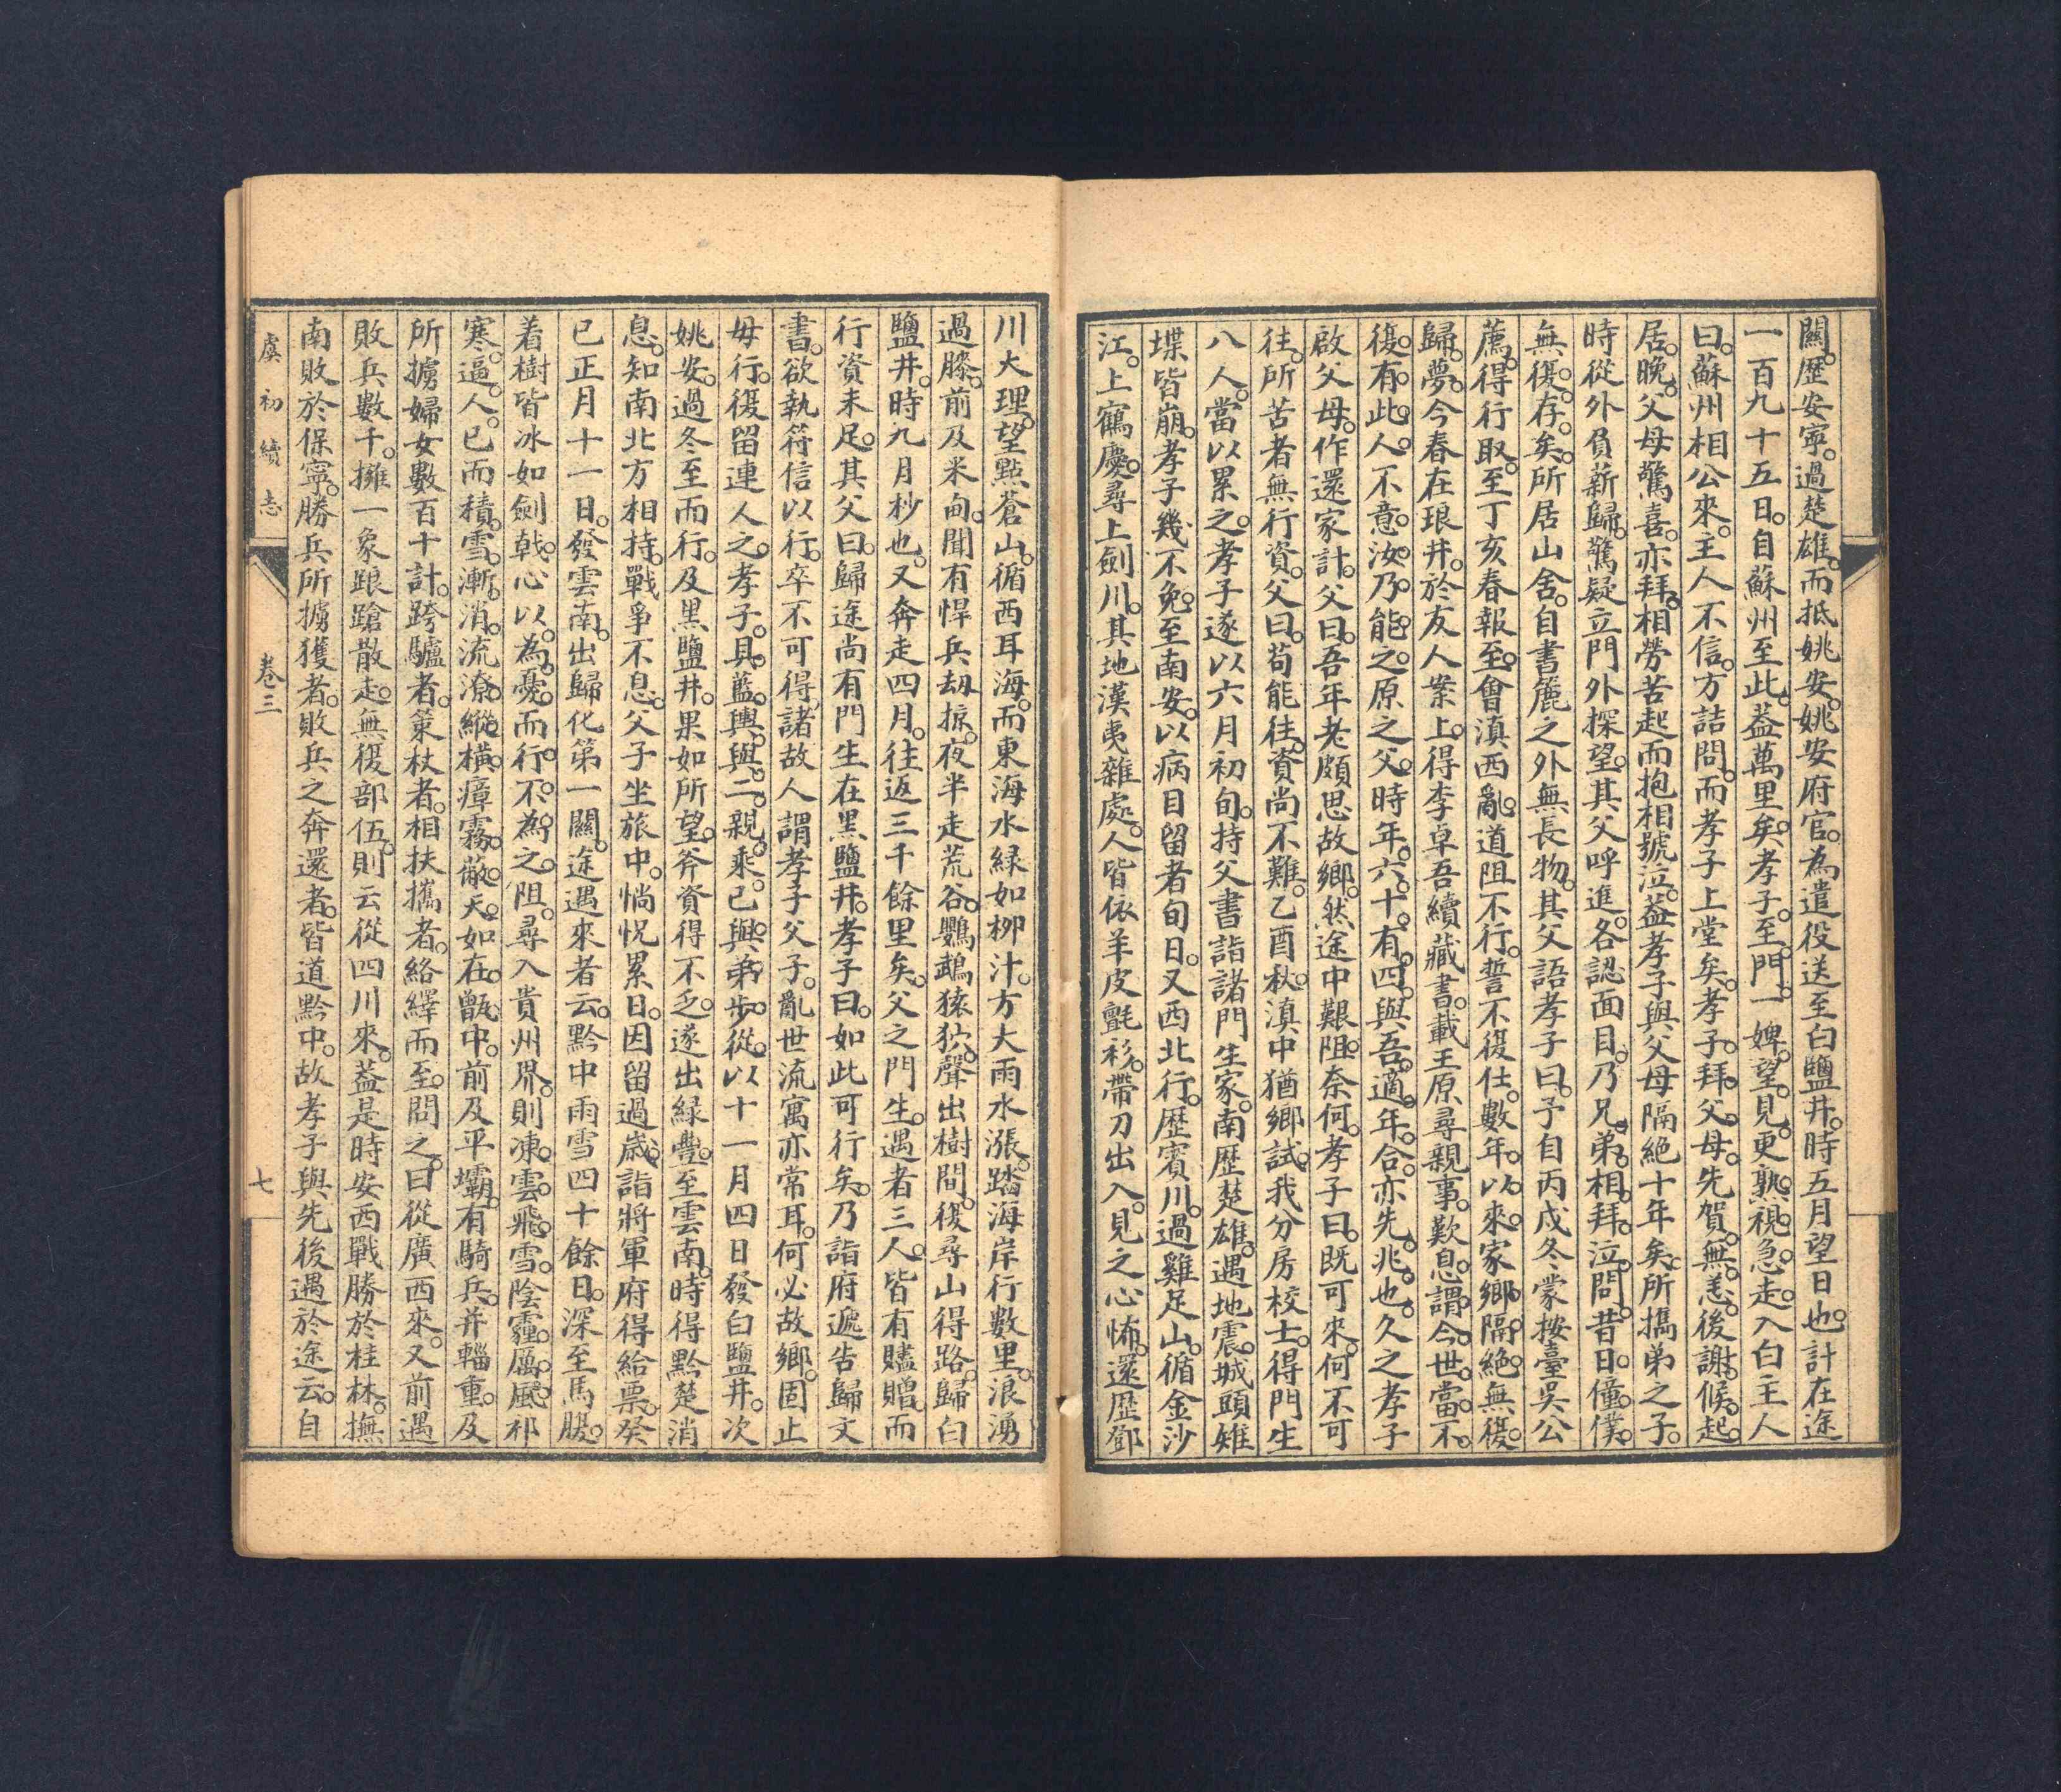 關。歷安寧。過楚雄。而抵姚安。姚安府官。為遣役送至白鹽井。時五月望日也。計在途
一百九十五日。自蘇州至此。葢萬里矣。孝子至門。一婢望見。更熟視。急走入白主人
曰。蘇州相公來。主人不信。方詰問。而孝子上堂矣。孝子拜父母。先賀無恙。後謝候起
居。晚。父母驚喜。亦拜。相勞苦。起而抱相號泣。葢孝子與父母隔絕十年矣。所攜弟之子。
時從外負薪歸。驚疑立門外探望。其父呼進。各認面目。乃兄弟相拜。泣問昔日僮僕。
無復存矣。所居山舍。自書簏之外無長物。其父語孝子曰。予自丙戌冬。蒙按臺吳公
薦。得行取。至丁亥春報至。會滇西亂。道阻不行。誓不復仕。數年以來。家鄉隔絕。無復
歸夢。今春在琅井。於友人案上。得李卓吾續藏書。載王原尋親事。歎息謂今世當不
復有此人。不意汝乃能之。原之父。時年六十有四。與吾適年合。亦先兆也。久之孝子
啟父母。作還家計。父曰。吾年老頗思故鄉。然途中艱阻奈何。孝子曰。既可來。何不可
往。所苦者無行資。父曰。苟能往。資尚不難。乙酉秋。滇中猶鄉試。我分房校士。得門生
八人。當以累之。孝子遂以六月初旬。持父書詣諸門生家。南歷楚雄。遇地震。城頭雉
堞皆崩。孝子幾不免。至南安。以病目留者旬日。又西北行。歷賓川。過雞足山。循金沙
江。上鶴慶。尋上劍川。其地漢夷雜處。人皆依羊皮氈衫。帶刀出入。見之心怖。還歷鄧
川大理。望點蒼山。循西耳海。而東海水綠如柳汁。方大雨水漲。踏海岸行數里。浪湧
過膝。前及米甸。聞有悍兵刼掠。夜半走荒谷。鸚鵡猿狖。聲出樹間。復尋山得路。歸白
鹽井。時九月杪也。又奔走四月。往返三千餘里矣。父之門生。遇者三人。皆有贐贈。而
行資未足。其父曰。歸途尚有門生在黑鹽井。孝子曰。如此可行矣。乃詣府遞告歸文
書。欲執符信以行。卒不可得。諸故人謂孝子父子。亂世流寓亦常耳。何必故鄉。固止
毋行。復留連人之。孝子。具藍輿。與二親乘。已與弟步從。以十一月四日發白鹽井。次
姚安。過冬至而行。及黑鹽井。果如所望。斧資得不乏。遂出綠豐。至雲南。時得黔楚消
息。知南北方相持。戰爭不息。父子坐旅中。惝怳累日。因留過歲。詣將軍府得給票。癸
巳正月十一日。發雲南。出歸化第一關。途遇來者云。黔中雨雪四十餘日。深至馬腹。
着樹皆冰如劍戟。心以為憂。而行不為之阻。尋入貴州界。則凍雲飛雪。陰霾厲風。祁
寒逼人。已而積雪漸消。流潦縱橫。瘴霧蔽天。如在甑中。前及平壩。有騎兵。并輜重。及
所擄婦女數百十計。跨驢者。策杖者。相扶攜者。絡繹而至。問之。曰從廣西來。又前遇
敗兵數千。擁一象踉蹌散走。無復部伍。則云從四川來。葢是時安西戰勝於桂林。撫
南敗於保寧。勝兵所擄獲者。敗兵之奔還者。皆道黔中。故孝子與先後遇於途云。自
虞初續志
卷三
七